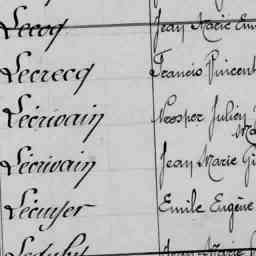 Lecoq Jean Marie Em
Lecrecq Francis Vincent
Lécrivain Prosper Julien
Ma
Lécrivain Jean Marie Gu
Lécuyer Emile Eugène
Jean Marie